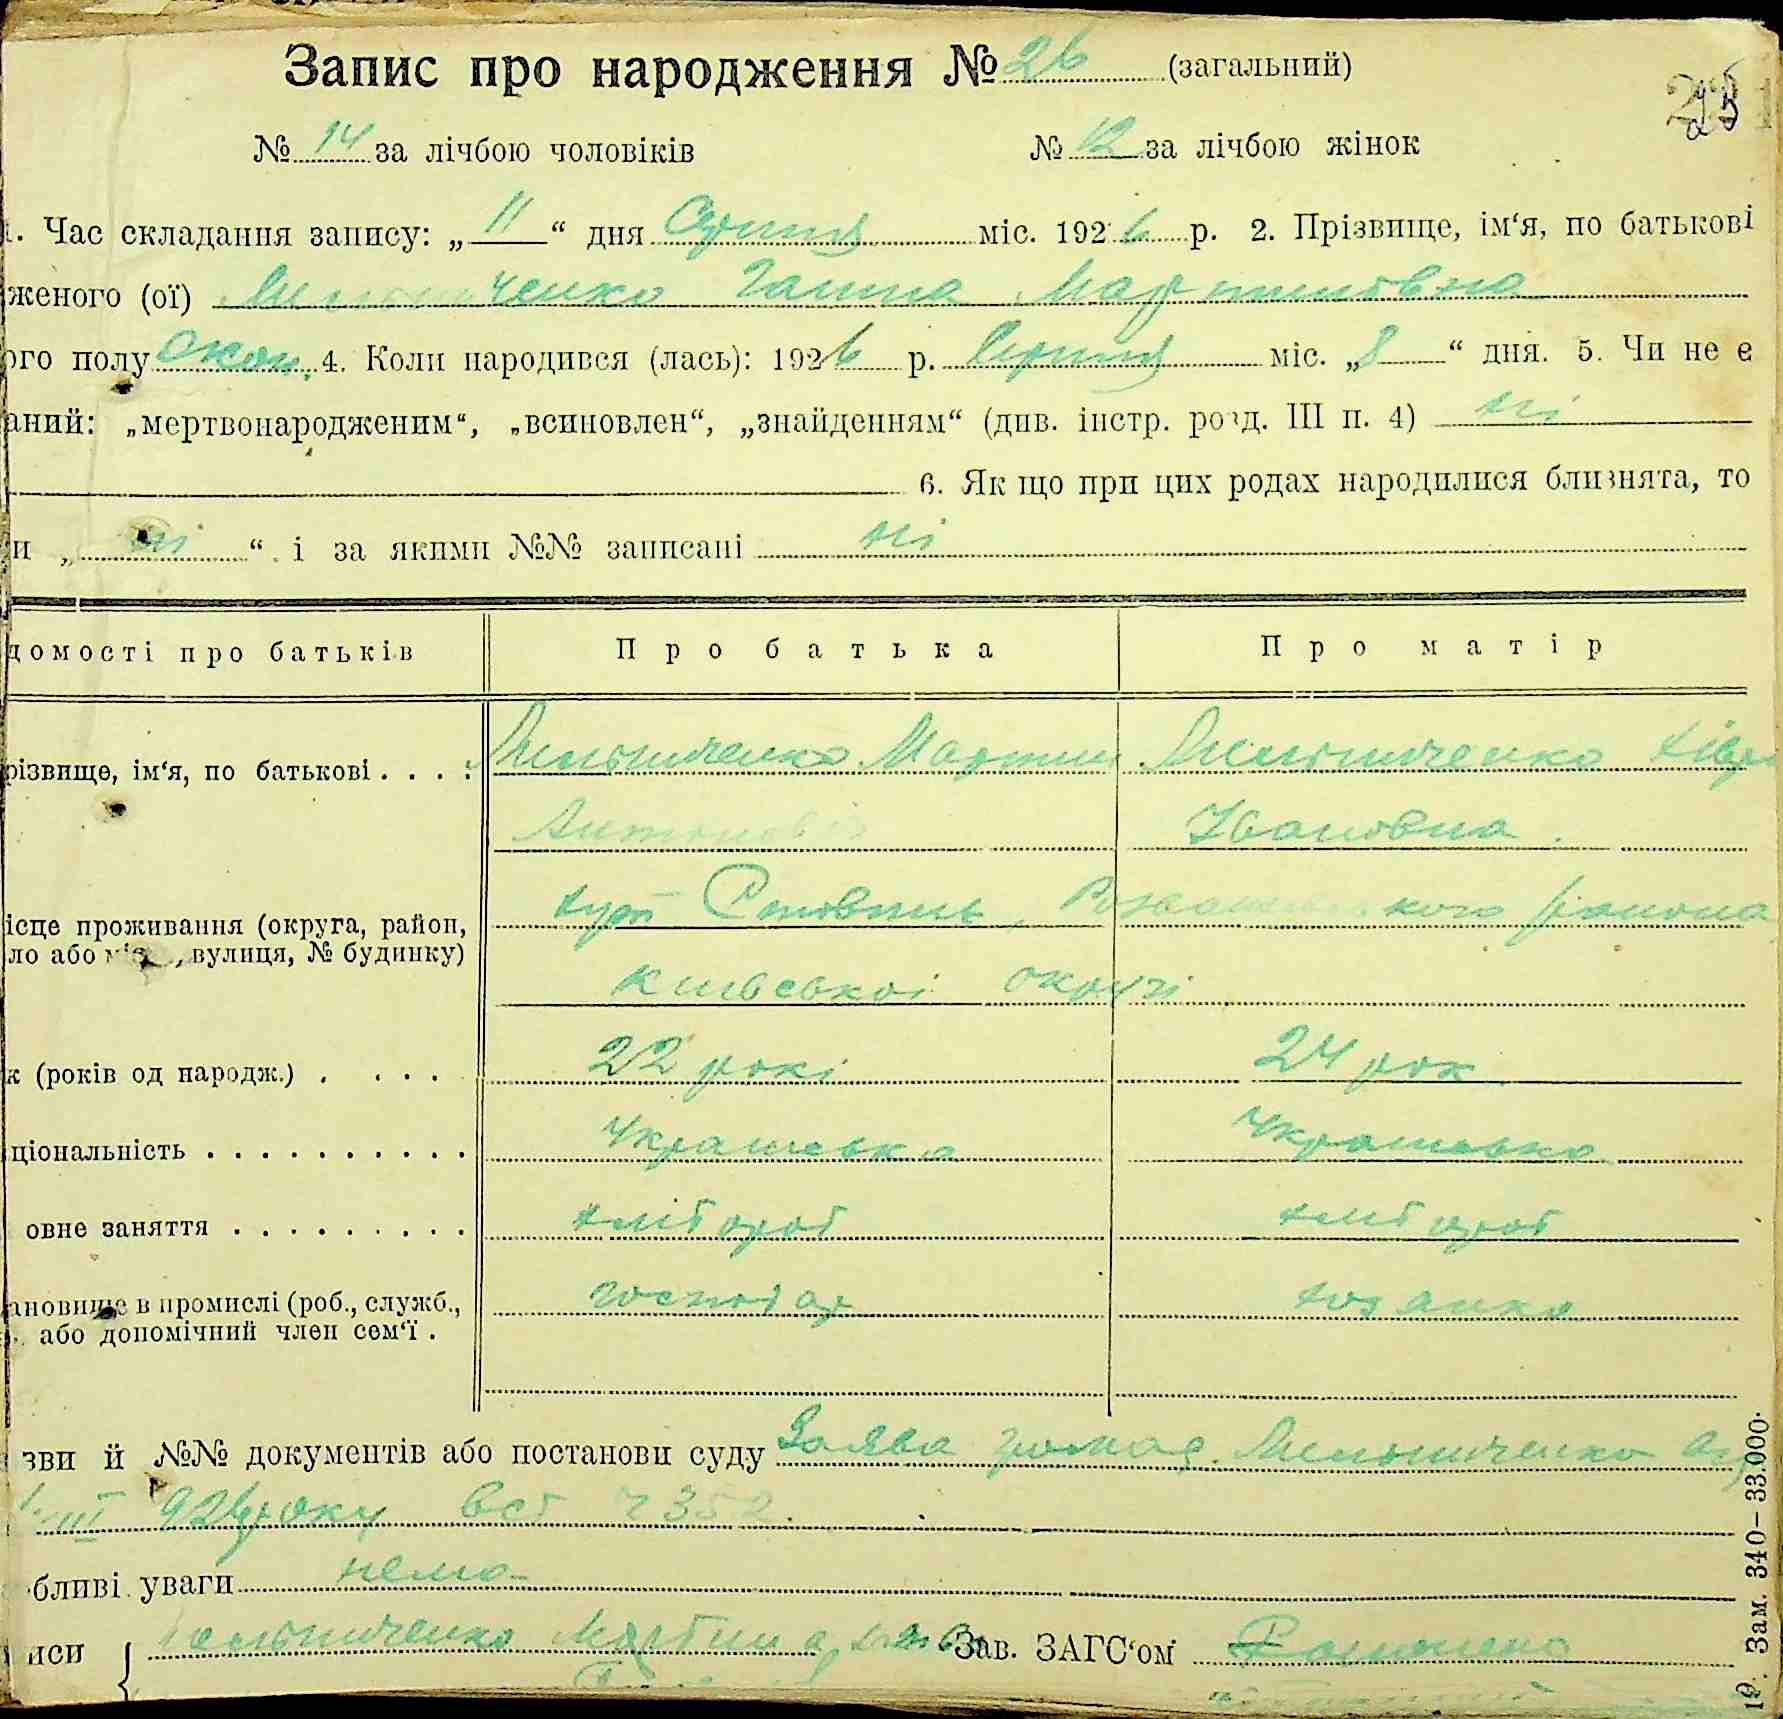 Запис про народження № 26 (загальний)
№ 14 за лічбою чоловіків № 12 за лічбою жінок
1. Час складання запису: „ 11 “ дня Серпня міс. 1926 р. 2. Прізвище, ім‘я, по батькові
женого (ої) Мельниченко Ганна Мартинівна
ого полу 4. Коли народився (лась): 1926 р. Серпня міс. „8“ дня. 5. Чи не є
аний: „мертвонародженим“, „всиновлен“, „знайденням“ (див. інстр. розд. III п. 4) ні
6. Як що при цих родах народилися близнята, то
и „ ні “ і за якими №№ записані ні
домості про батьків Про батька Про матір
різвище, ім‘я, по батькові . . . . Мельниченко Мартин Мельниченко
Антонові Івановна
ісце проживання (округа, район, району
ло або , вулиця, № будинку)
київської округі
к (років од народж.) . . . . 22 рокі 24 рок
ціональність . . . . . . . . . . Українська Українська
овне заняття . . . . . . . . . хлібороб хлібороб
ановище в промислі (роб., служб., господар хозяйка
або допомічний член сем‘ї .
зви й №№ документів або постанови суду Заява громад. Мельниченко
III 926 року 352
бливі уваги нема
иси { Мельниченко Зав. ЗАГС‘ом
19. Зам. 340—33.000.